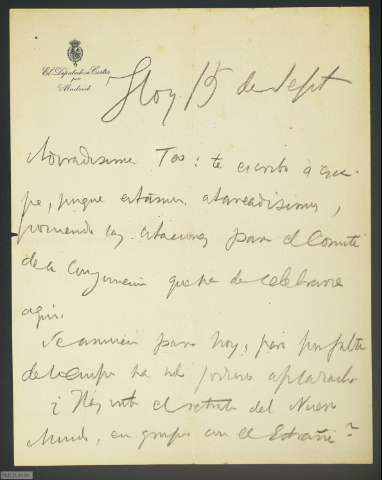 El Diputado a Cortes
por
Madrid
Hoy 15 de Sept
Adoradísima Tos: te escribo á esca-
pe, porque estamos atareadísimos,
poniendo las citaciones para el Comité
de la Conjunción que ha de celebrarse
aquí.
Se anunció para hoy, pero por falta
de tiempo ha sido preciso aplazarlo
¿Has visto el retrato del Nuevo
Mundo, en grupo con el Español?